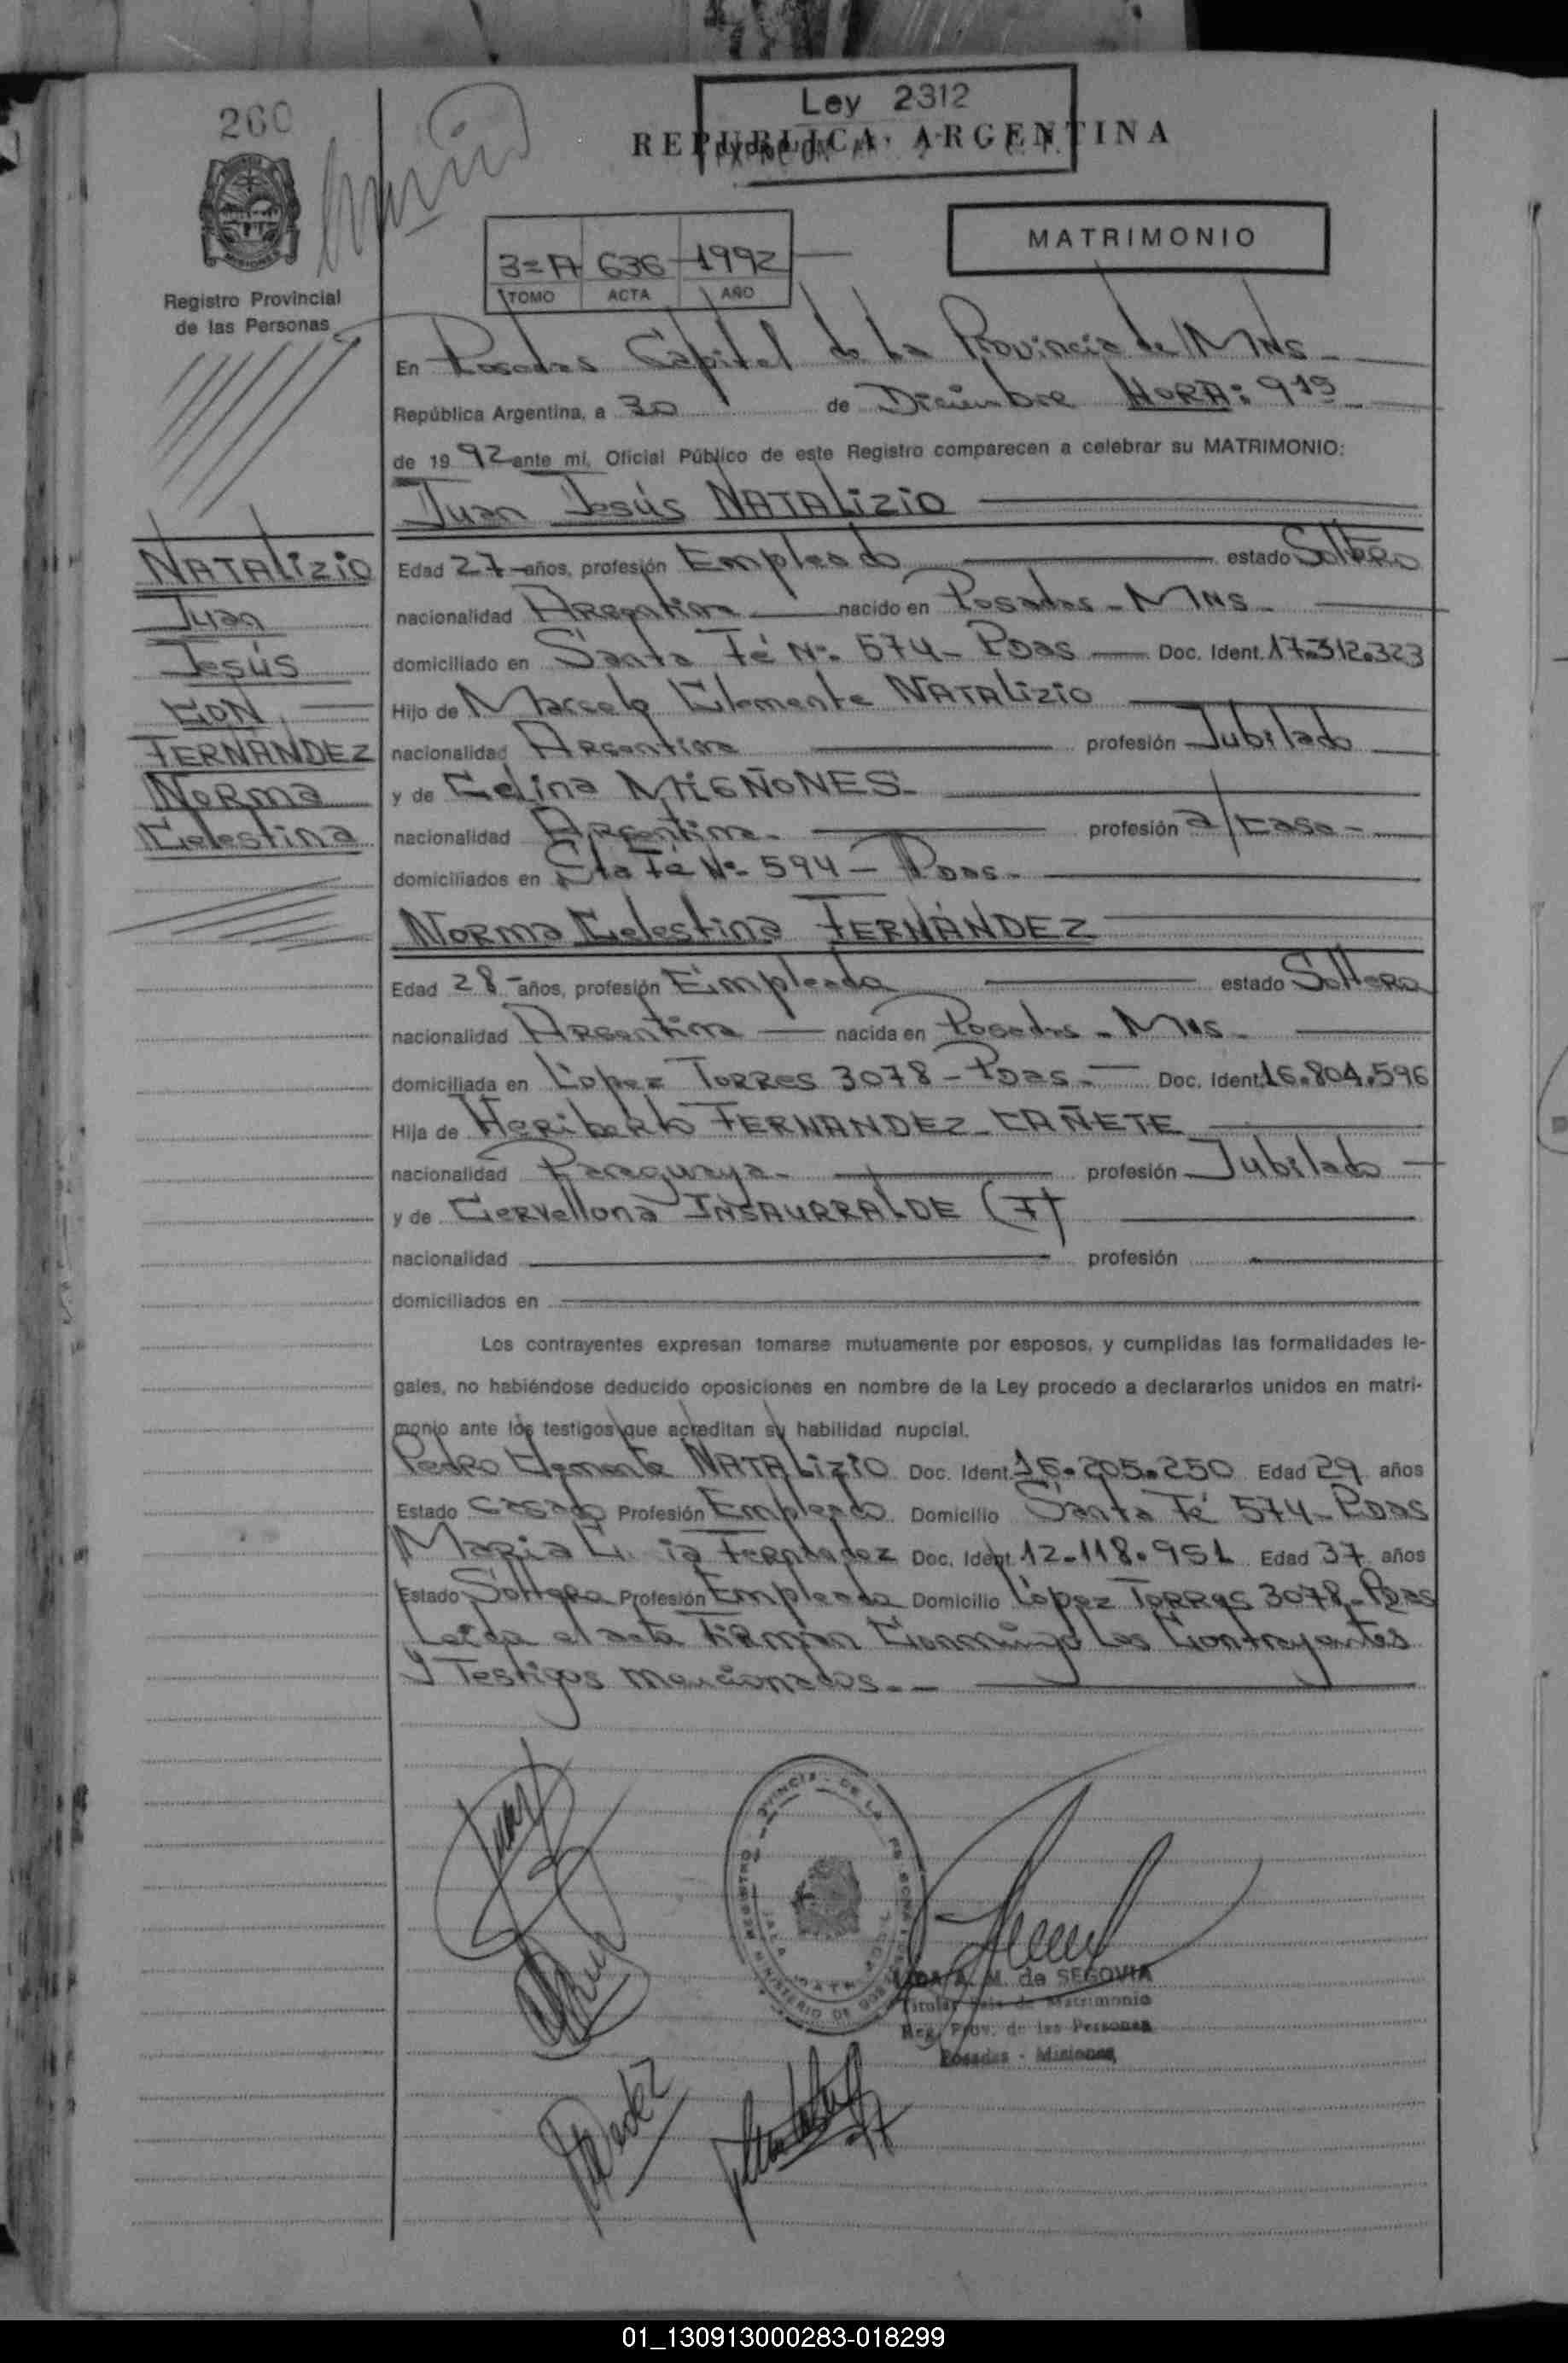 260
Ley 2312
REPUBLICA ARGENTINA
MISIONES
Registro Provincial
de las Personas
3=A 636 1992
TOMO ACTA AÑO
MATRIMONIO
En Posadas Capital de La Provincia de Mns
República Argentina, a 30 de Diciembre HORA: 9 15
de 1992 ante mí, Oficial Público de este Registro comparecen a celebrar su MATRIMONIO:
Juan Jesús NATALIZIO
NATALIZIO
Juan
Jesús
CON
FERNANDEZ
Norma
Celestina
Edad 27 años, profesión Empleado estado Soltero
nacionalidad Argentina nacido en Posadas - Mns
domiciliado en Santa Fé Nº 574 - Pdas Doc. Ident. 17.312.323
Hijo de Marcelo Clemente NATALIZIO
nacionalidad Argentina profesión Jubilado
y de Celina MIÑONES
nacionalidad Argentina profesión a/casa
domiciliados en Sta Fé Nº 594 - Pdas
Norma Celestina FERNÁNDEZ
Edad 28 años, profesión Empleada estado Soltera
nacionalidad Argentina nacida en Posadas - Mns
domiciliada en López Torres 3078 - Pdas Doc. Ident. 16.804.596
Hija de Heriberto FERNANDEZ CAÑETE
nacionalidad Paraguaya profesión Jubilado
y de Cervellona INSAURRALDE (F)
nacionalidad profesión
domiciliados en
Los contrayentes expresan tomarse mutuamente por esposos, y cumplidas las formalidades le-
gales, no habiéndose deducido oposiciones en nombre de la Ley procedo a declararlos unidos en matri-
monio ante los testigos que acreditan su habilidad nupcial.
Pedro Clemente NATALIZIO Doc. Ident. 16.205.250 Edad 29 años
Estado Casado Profesión Empleado Domicilio Santa Fé 574 - Pdas
Maria Fernandez Doc. Ident. 12.118.951 Edad 37 años
Estado Soltera Profesión Empleada Domicilio López Torres 3078 - Pdas
Leída el acta Firman Conmigo Los Contrayentes
y Testigos mencionados.
A. M. de SEGOVIA
Titular de Matrimonio
Reg. Prov. de las Personas
Posadas - Misiones
01_130913000283-018299